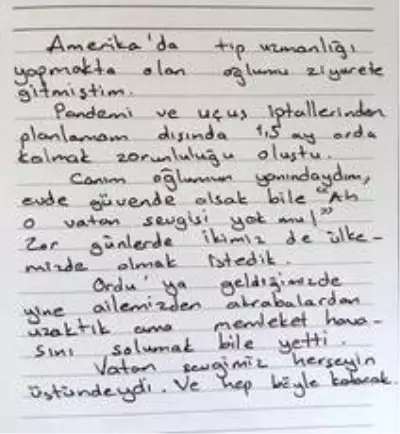 Amerika'da tıp uzmanlığı
yapmakta olan oğlumu ziyarete
gitmiştim.
Pandemi ve uçuş iptallerinden
planlamam dışında 1,5 ay orda
kalmak zorunluluğu oluştu.
Canım oğlumun yanındaydım,
evde güvende olsak bile "Ah
o vatan sevgisi yok mu!"
Zor günlerde ikimiz de ülke-
mizde olmak istedik.
Ordu'ya geldiğimizde
yine ailemizden akrabalardan
uzaktık ama memleket hava-
sını solumak bile yetti.
Vatan sevgimiz herşeyin
üstündeydi. Ve hep böyle kalacak.